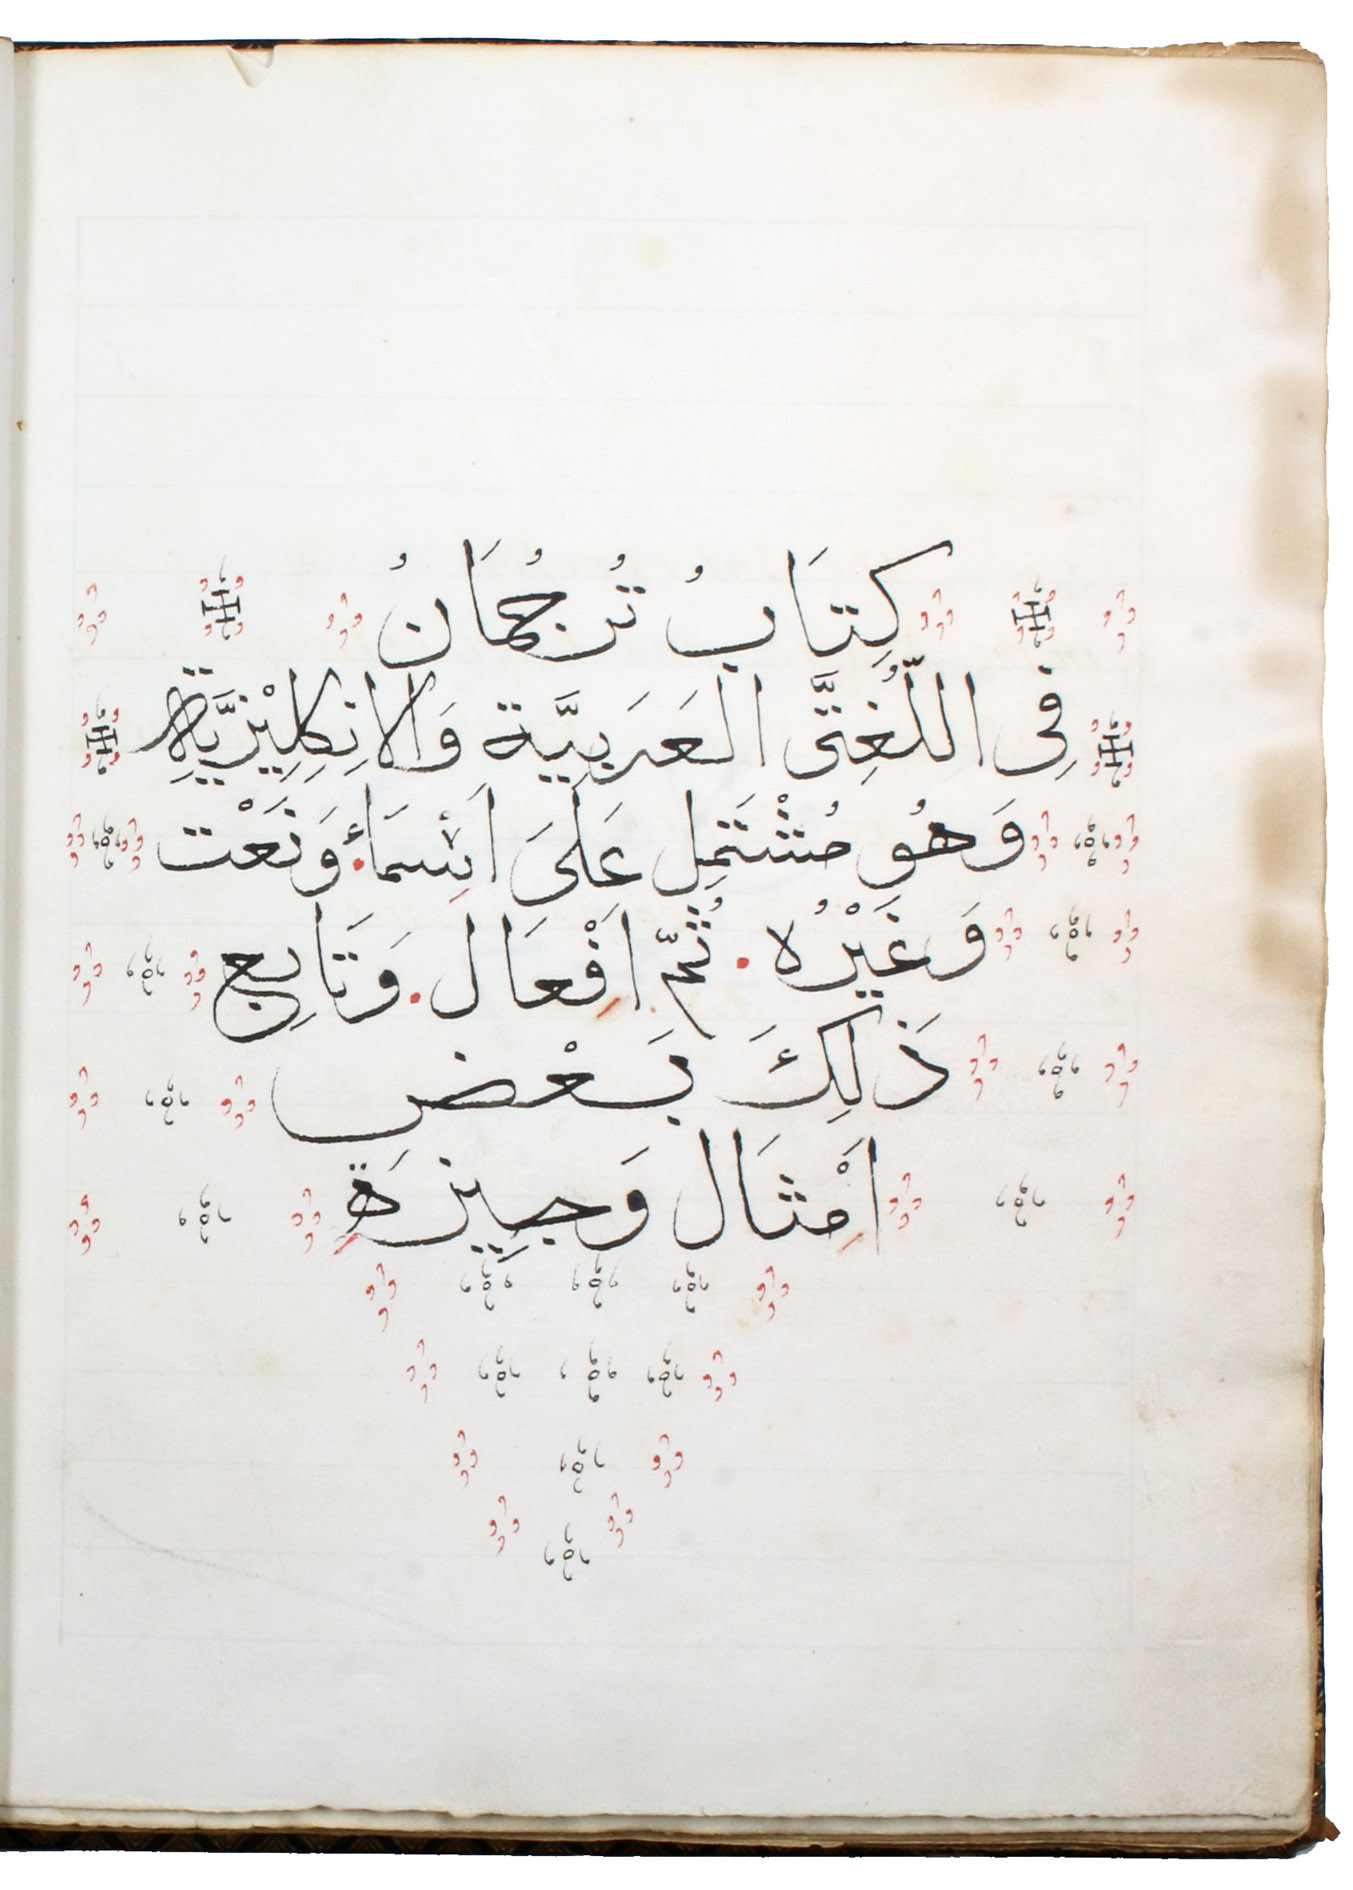 كِتَابُ تُرجُمَانُ
فِى اللُّغِتَّى العَرَبِيَّة وَالانِكِلِيْزِيَّةِ
وَهُو مُشْتَمِل عَلَىَ اَسْمَاءُ وَنَعْت
وَغَيْرُه. ثُمّ اَفْعَال. وَتَابِع
ذَلِكَ بَعْض
اَمْثَال وَجِيزَة